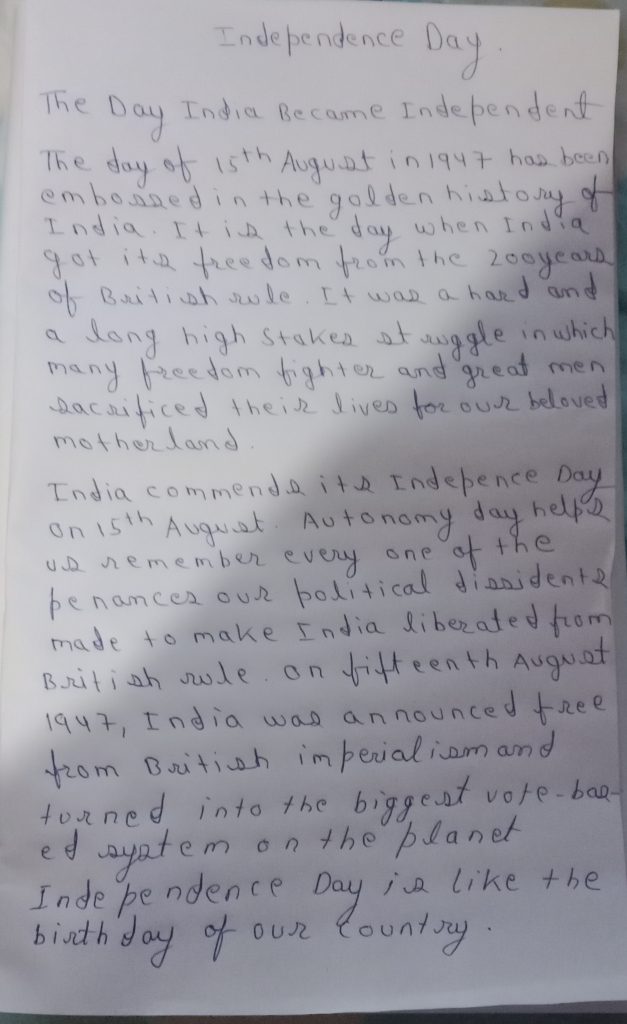 Independence Day.
The Day India Became Independent
The day of 15th August in 1947 has been
embossed in the golden history of
India. It is the day when India
got its freedom from the 200years
of British rule. It was a hard and
a long high stakes struggle in which
many freedom fighter and great men
sacrificed their lives for our beloved
motherland.
India commends its Indepence Day
on 15th August. Autonomy day helps
us remember every one of the
penances our political dissidents
made to make India liberated from
British rule. on fifteenth August
1947, India was announced free
from British imperialism and
turned into the biggest vote-bas-
ed system on the planet
Independence Day is like the
birthday of our Country.